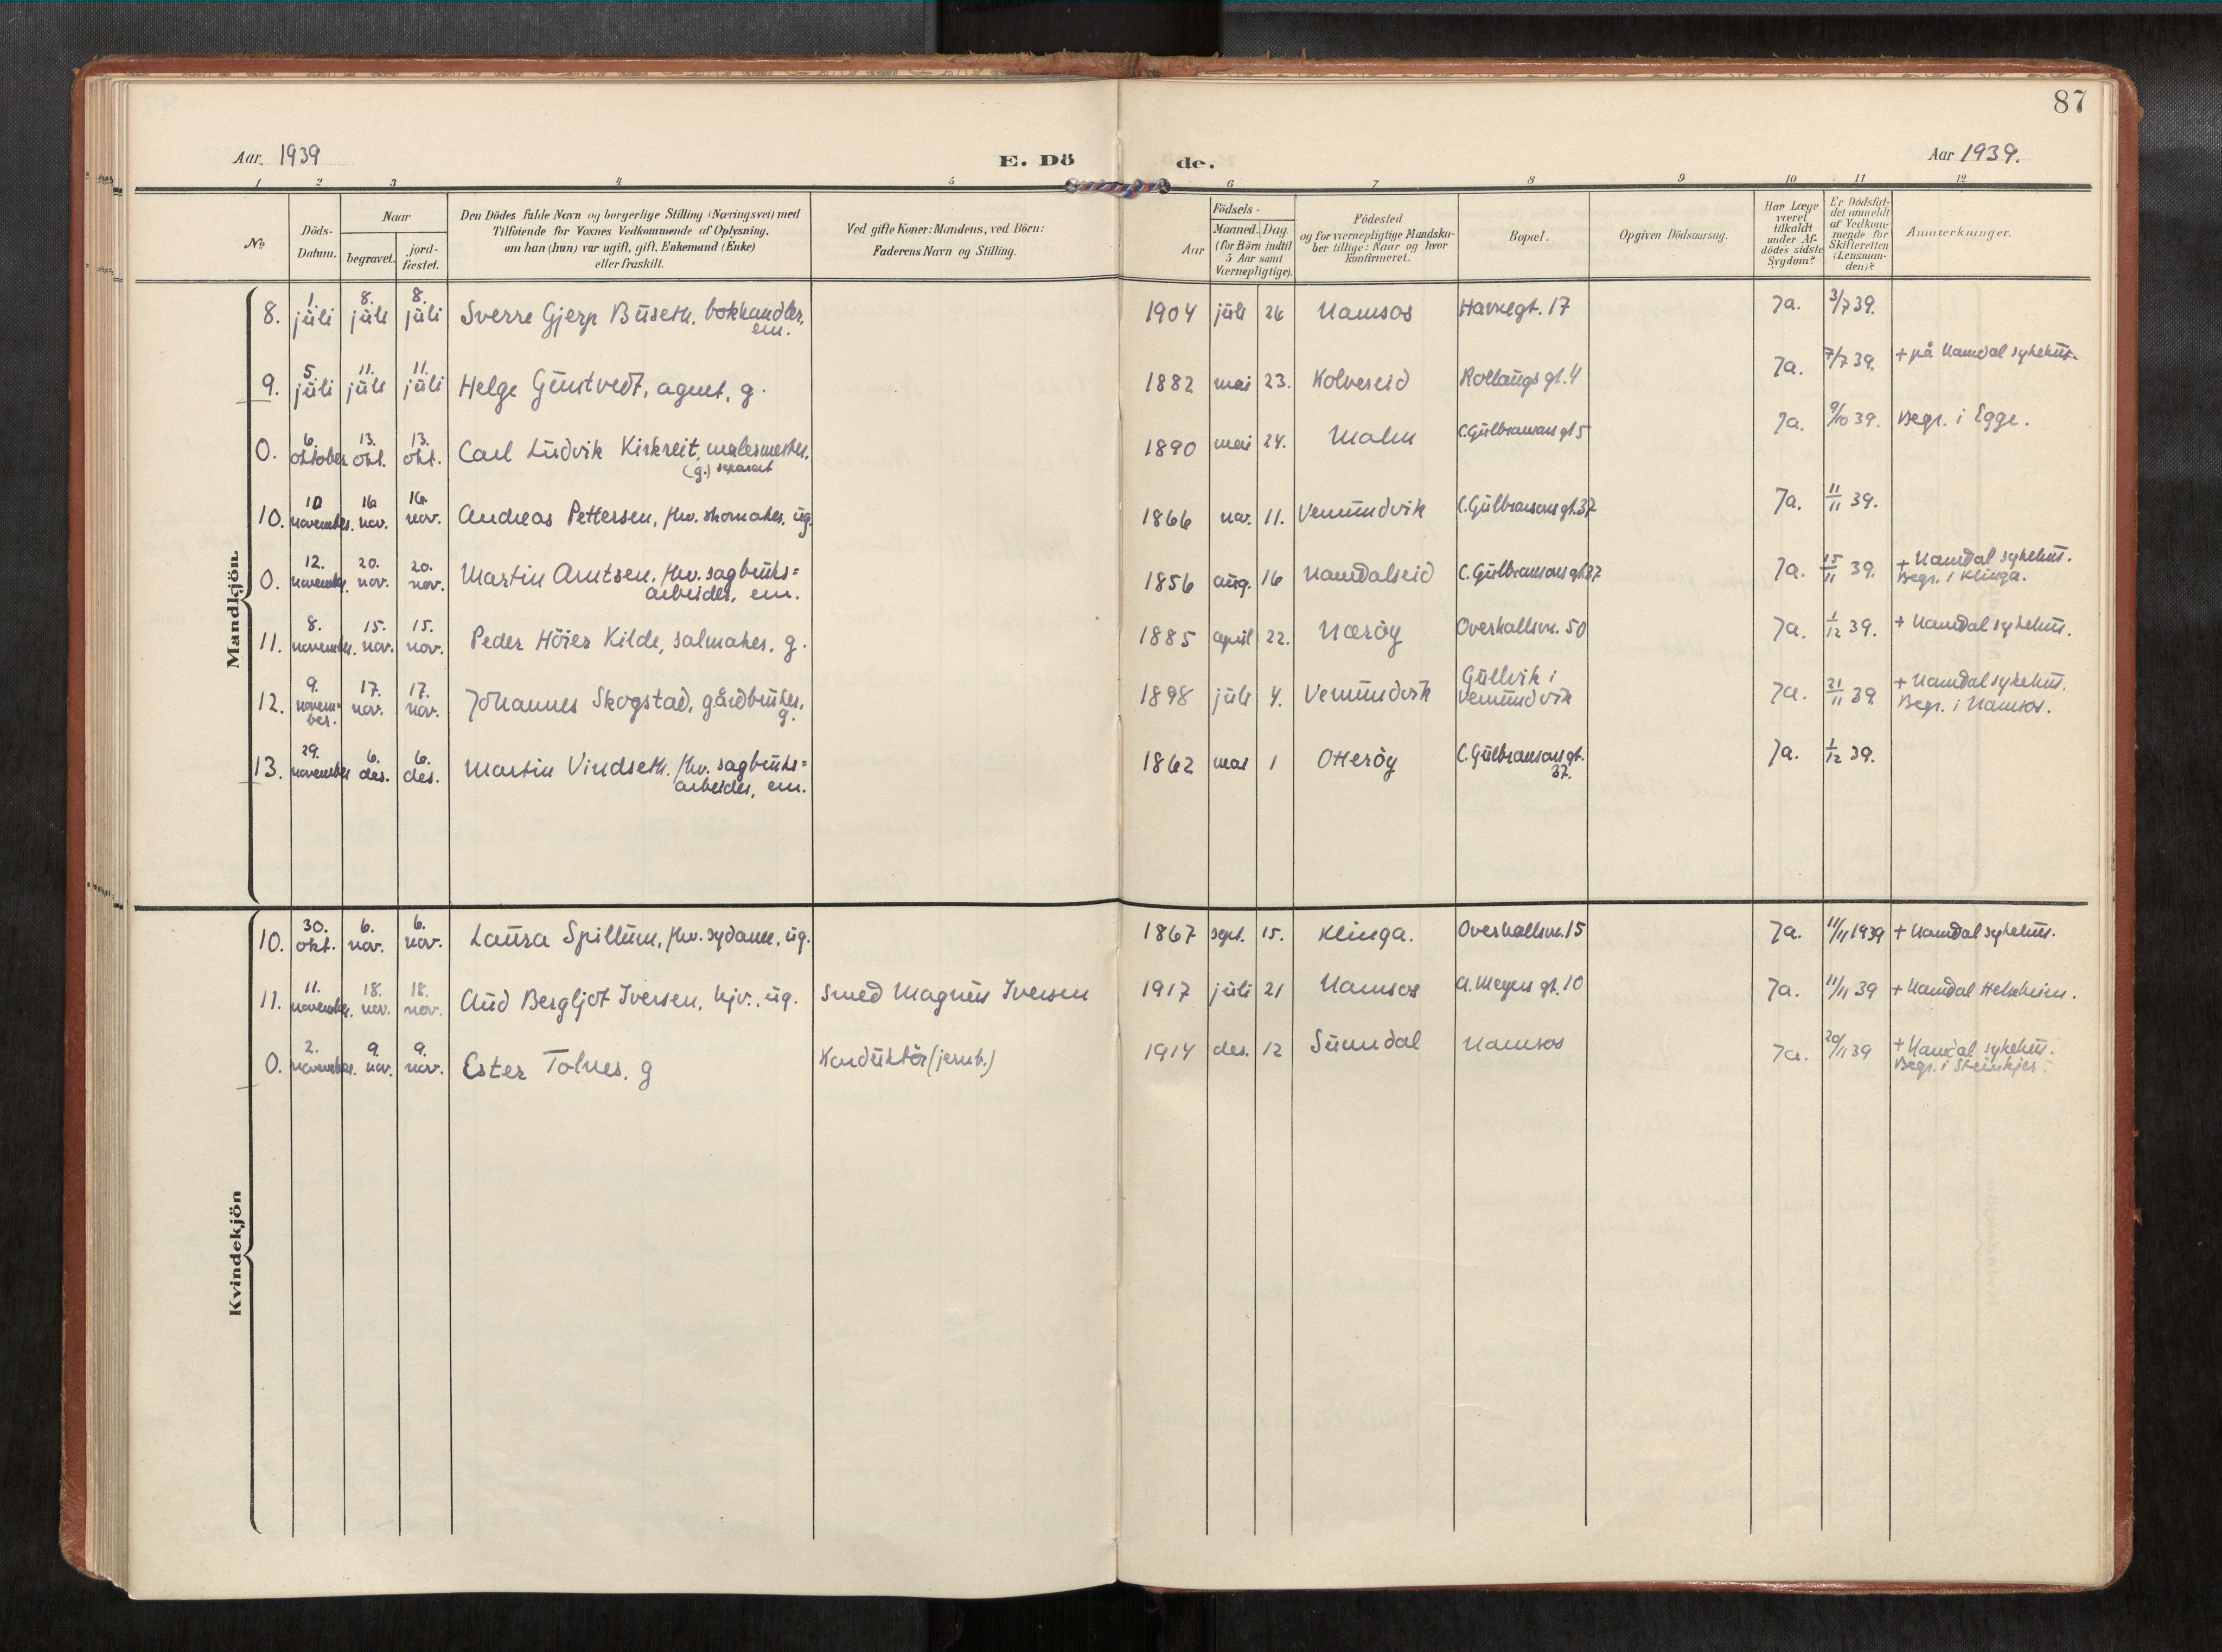 87
Aar. 1939
E. Dö
de.
Aar 1939.
1 2 3 4 5 6 7 8 9 10 11 12
№
Döds-
Datum.
Naar
begravet.
jord-
fæstet.
Den Dödes fulde Navn og borgerlige Stilling (Næringsvei) med
Tilföiende for Voxnes Vedkommende af Oplysning,
om han (hun) var ugift, gift, Enkemand (Enke)
eller fraskilt.
Ved gifte Koner: Mandens, ved Börn:
Faderens Navn og Stilling.
Födsels-
Aar
Maaned. Dag.
(for Börn indtil
5 Aar samt
Værnepligtige).
Födested
og for værnepligtige Mandska-
ber tillige: Naar og hvor
konfirmeret.
Bopæl.
Opgiven Dödsaarsag.
Har Læge
været
tilkaldt
under Af-
dödes sidste
Sygdom?
Er Dödsfal-
det anmeldt
af Vedkom-
mende for
Skifteretten
(Lensman-
den)?
Anmærkninger.
Mandkjön.
8. 1. juli 8. juli 8. juli Sverre Gjerp Buseth, bokhandler, 1904 juli 26 Namsos Havnegt. 17 Ja. 3/7 39.
em.
9. 5. juli 11. juli 11. juli Helge Gustvedt, agent, g. 1882 mai 23. Kolvereid Rollaugs gt. 4 Ja. 7/7 39. + på Namdal sykehus.
0. 6. oktober 13. okt. 13. okt. Carl Ludvik Kirkreit, malermester, 1890 mai 24. Malm C. Gulbransons gt 5 Ja. 9/10 39. Begr. i Egge.
(g.) separert
10. 10 november. 16 nov. 16. nov. Andreas Pettersen, fhv. skomaker, ug. 1866 nov. 11. Vemundvik C. Gulbransons gt. 37 Ja. 11/11 39.
0. 12. november. 20. nov. 20. nov. Martin Arntsen, fhv. sagbruks= 1856 aug. 16 Namdalseid C. Gulbransons gt 37 Ja. 15/11 39. + Namdal sykehus.
arbeider, em. Begr. i Klinga.
11. 8. november. 15. nov. 15. nov. Peder Höier Kilde, salmaker, g. 1885 april 22. Nærøy Overhallsvn. 50 Ja. 1/12 39. + Namdal sykehus.
12. 9. novem=ber. 17. nov. 17. nov. Johannes Skogstad, gårdbruker, 1898 juli 4. Vemundvik Gullvik i Vemundvik Ja. 21/11 39. + Namdal sykehus.
g. Begr. i Namsos.
13. 29. november 6. des. 6. des. Martin Vindseth, fhv. sagbruks= 1862 mai 1 Otterøy C. Gulbransons gt. 37. Ja. 1/12 39.
arbeider, em.
Kvindekjön
10. 30. okt. 6. nov. 6. nov. Laura Spillum, fhv. sydame, ug. 1867 sept. 15. Klinga. Overhallsvn. 15 Ja. 11/11 1939 + Namdal sykehus.
11. 11. november. 18. nov. 18. nov. Aud Bergljot Iversen, hjv., ug. Smed Magnus Iversen 1917 juli 21 Namsos A. Meyers gt. 10 Ja. 11/11 39 + Namdal Helseheim.
0. 2. november. 9. nov. 9. nov. Ester Tolnes, g Konduktör (jernb.) 1914 des. 12 Sunndal Namsos Ja. 20/11 39 + Namdal sykehus.
Begr. i Steinkjer.